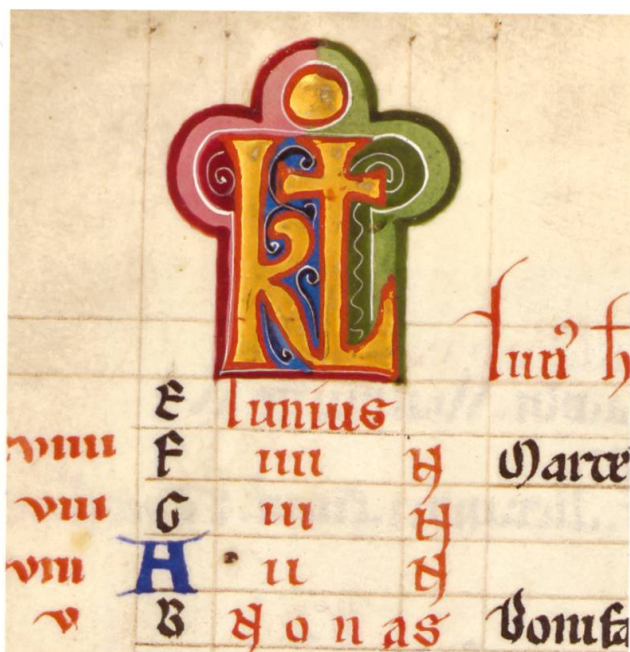 KL
Iuni⁹ h
E Iunius
viiii F iiii N Marce
viii G iii N
viii A ii N
v B Nonas Bonifa